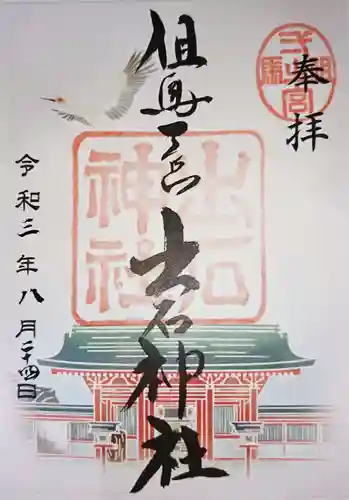 奉拝
但馬一宮
出石神社
出石
神社
令和三年八月二十四日